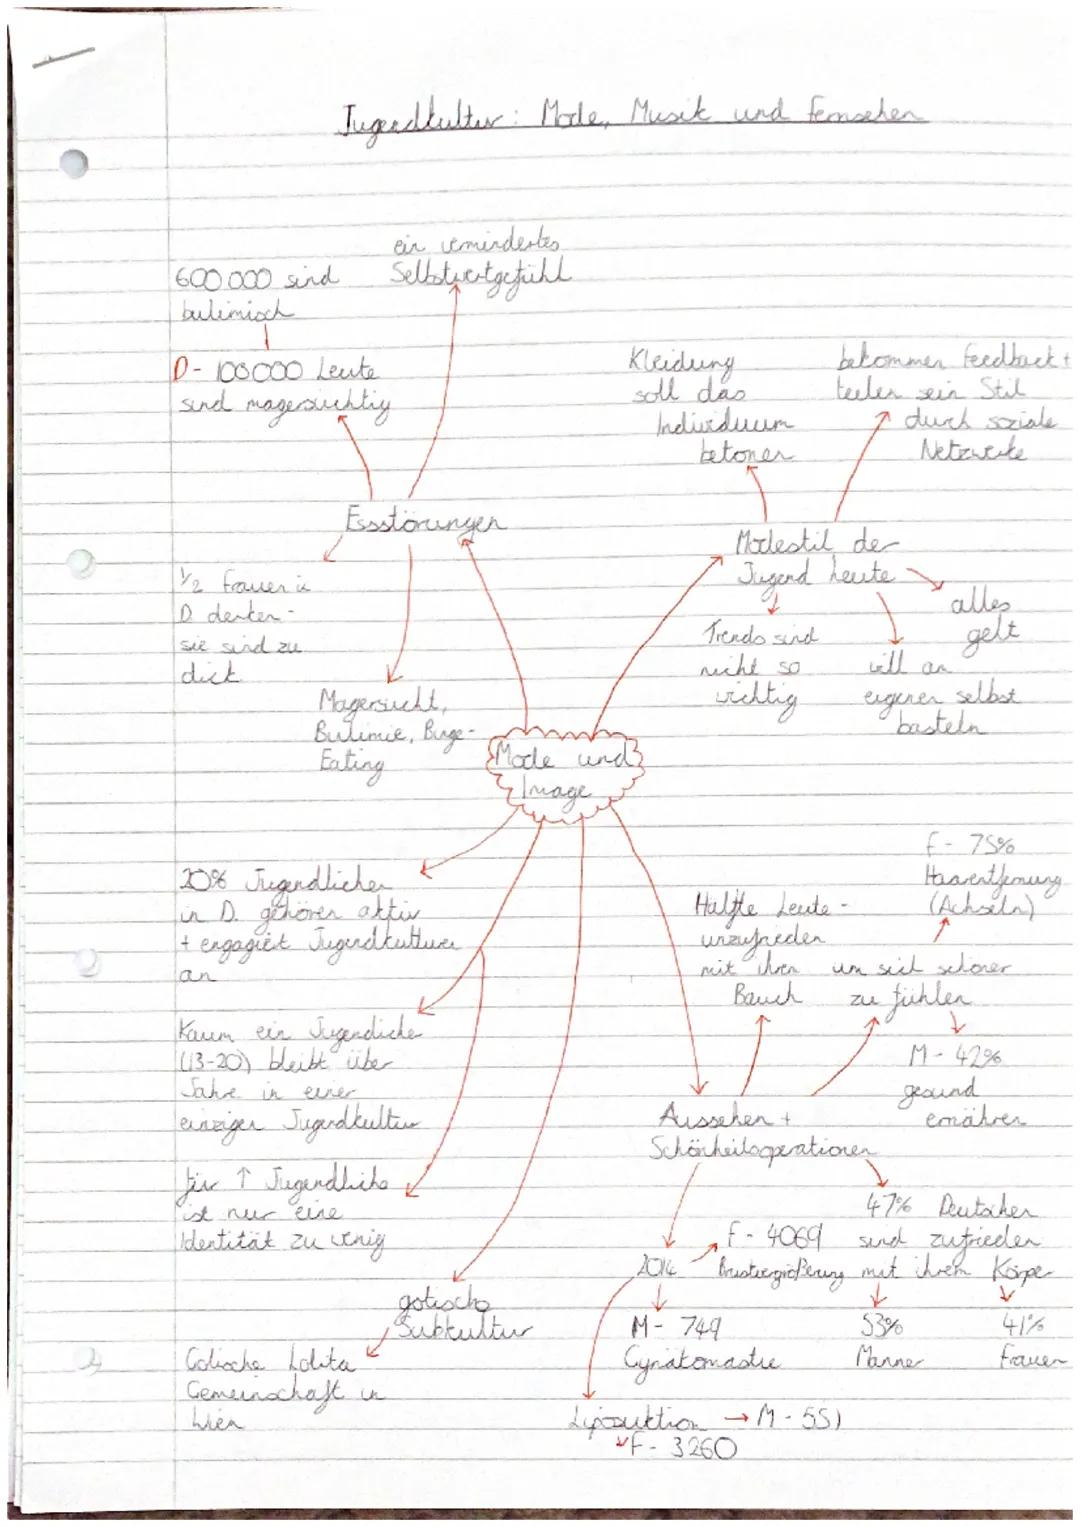 Jugendkultur: Mode, Musik und Fernsehen
ein vermindertes
Selbstwertgefühl
600 000 sind
bulimisch
D - 100 000 Leute
sind magersüchtig
Essstörungen
1/2 Frauen in
D. denken -
sie sind zu
dick
Magersucht,
Bulimie, Binge-
Eating
Kleidung
soll das
Individuum
betonen
bekommen Feedback +
teilen sein Stil
durch soziale
Netzwerke
Modestil der
Jugend heute
alles
gelt
Trends sind
nicht so
wichtig
will an
eigenen selbst
basteln
Mode und
Image
20% Jugendlichen
in D. gehören aktiv
+ engagiert Jugendkulturen
an
Kaum ein Jugendliche
(13-20) bleibt über
Jahre in einer
einzigen Jugendkultur
für ↑ Jugendliche
ist nur eine
Identität zu wenig
gotische
Subkultur
Gotische Lolita
Gemeinschaft in
Wien
Hälfte Leute -
unzufrieden
mit ihren
Bauch
F - 75%
Haarentfernung
(Achseln)
um sich schöner
zu fühlen
M - 42%
gesund
ernähren
Aussehen +
Schönheitsoperationen
47% Deutschen
sind zufrieden
mit ihrem Körper
53%
Männer
41%
Frauen
2014
F - 4069
Brustvergrößerung
M - 749
Gynätomastie
Liposuktion → M - 551
F - 3260